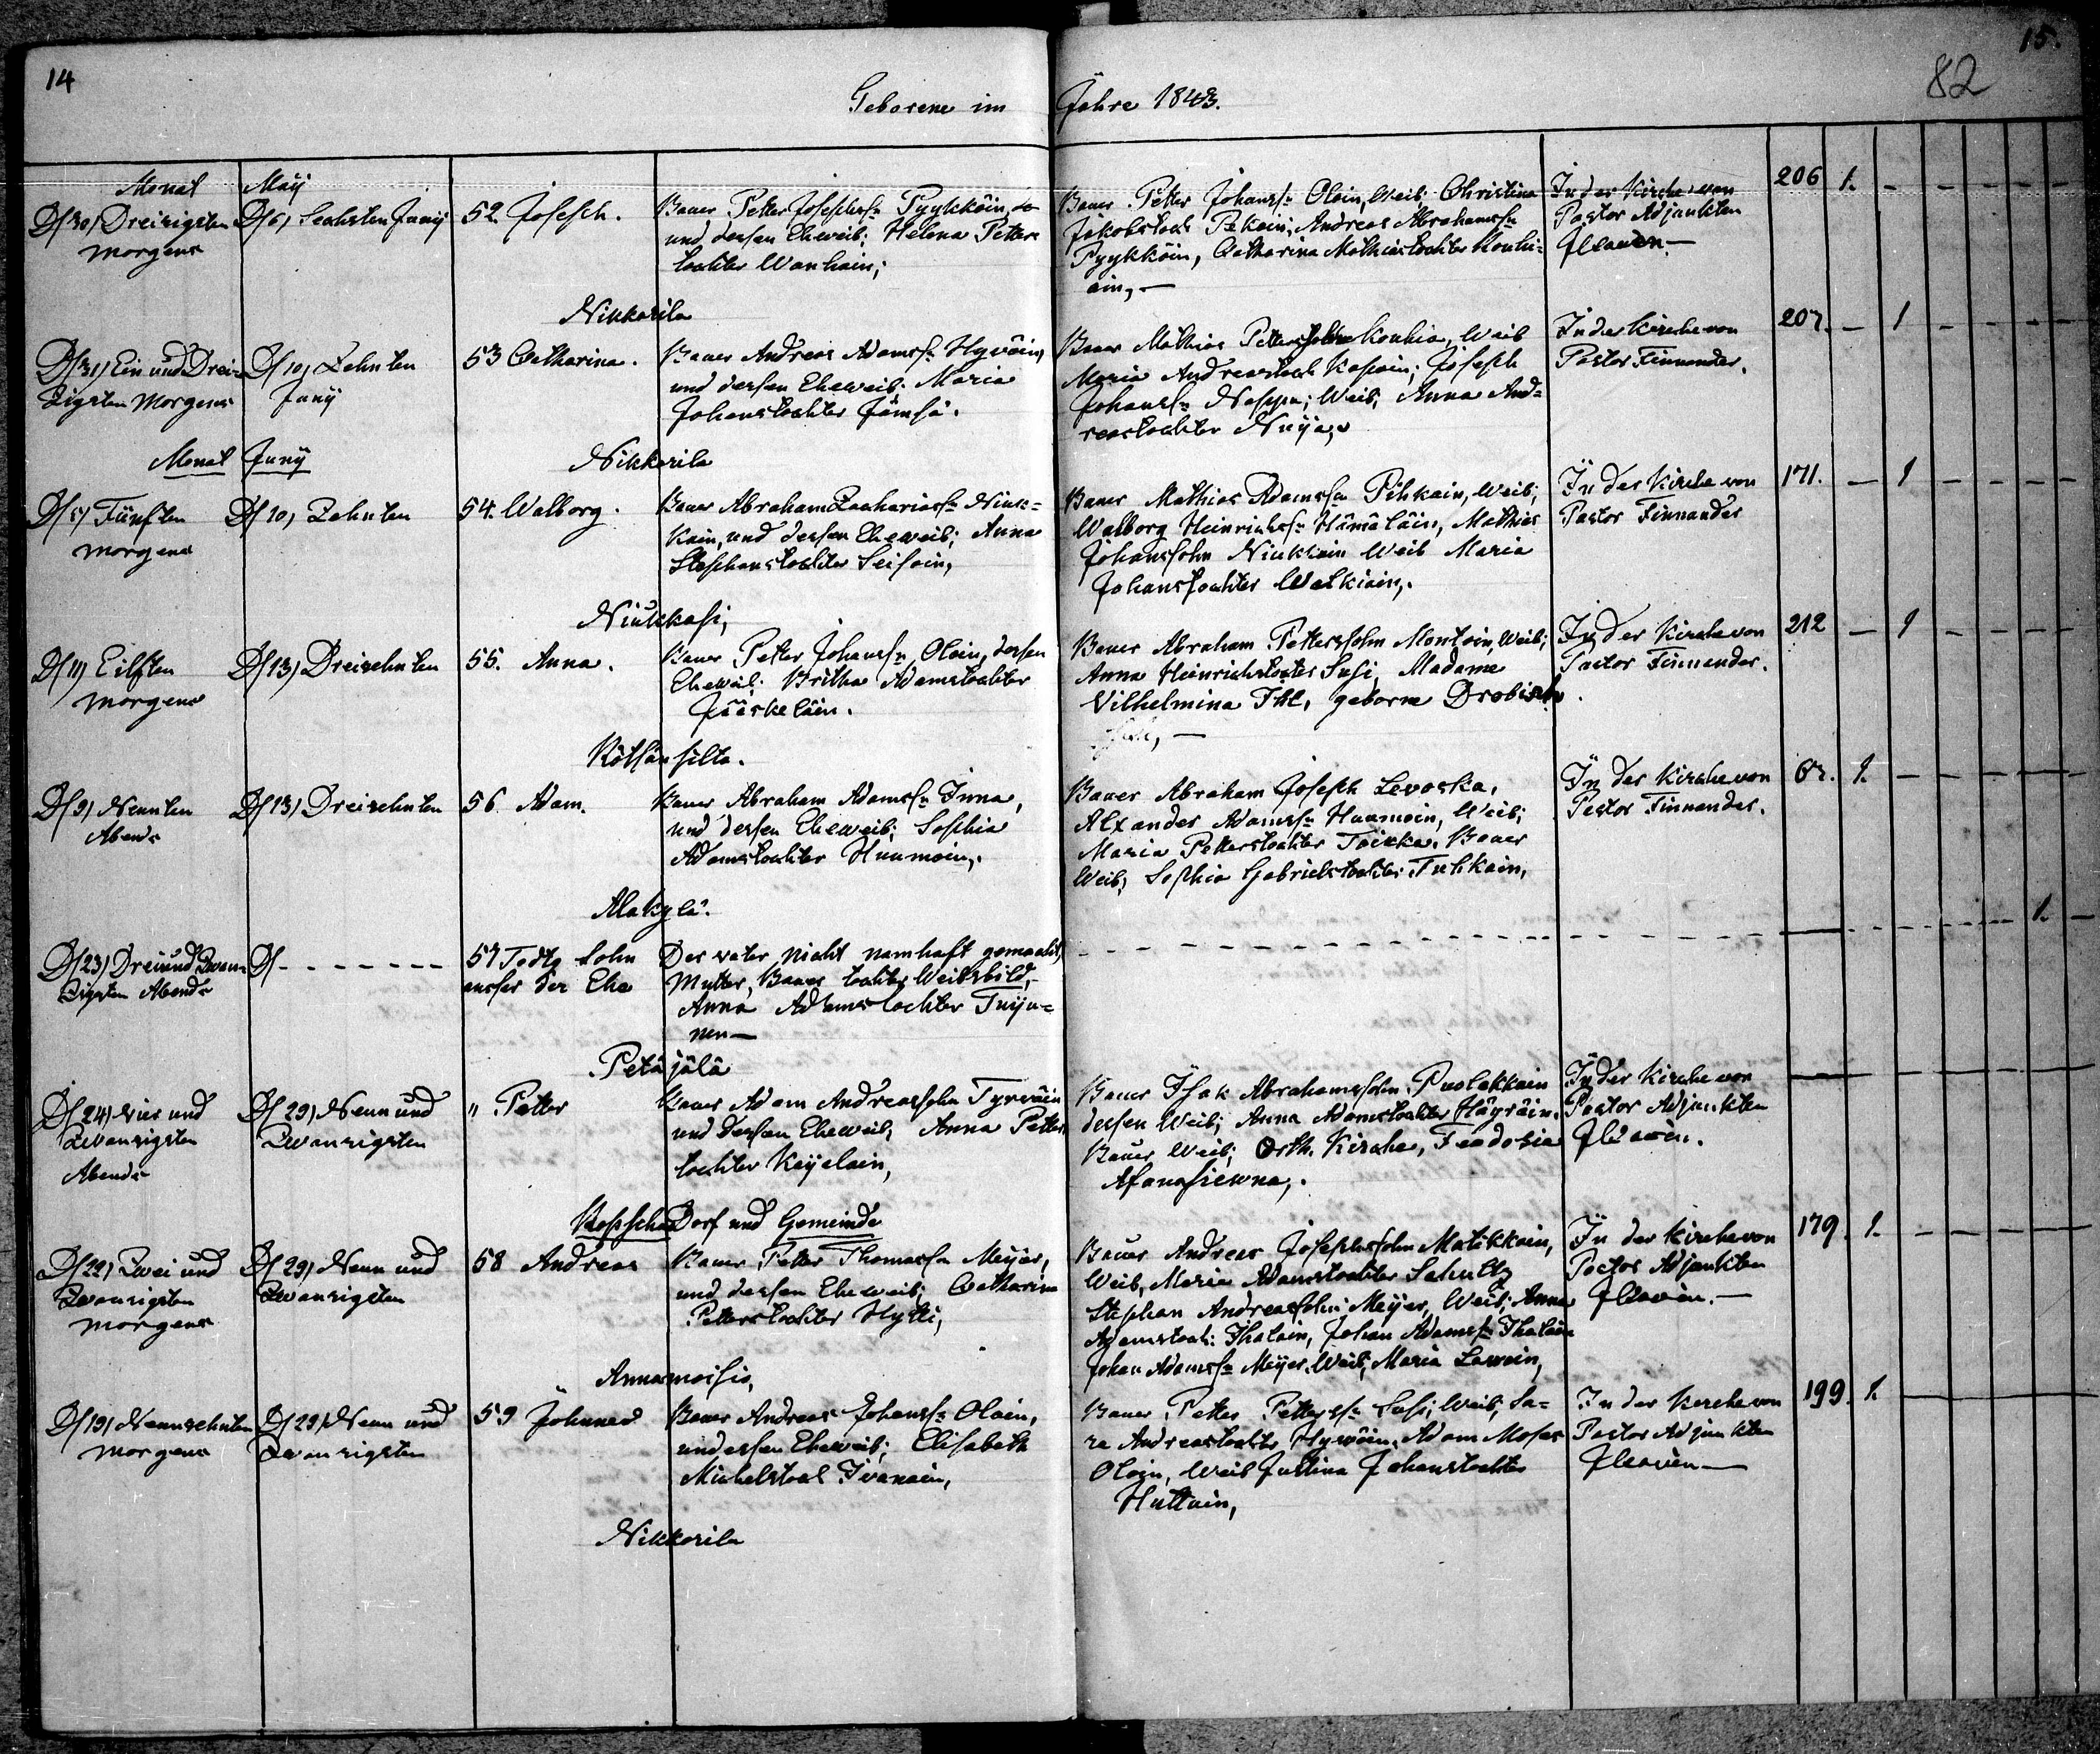 14
15.
82
Geborene im Jahre 1843.
Monat Maij
D/30, Dreisigsten
Morgens
D/6, Sechsten Junij
52 Joseph.
Bauer Petter Josephss: Pyykköin,
und dessen Eheweib; Helena Petters
tochter Wanhain;
Nikkorila
Bauer Petter Johanss: Oloin, Weib Christina
Jakobstoch Pekoin; Andreas Abrahamss:
Pyykköin, Catharina Mathiastochter Kouhi=
ain, —
In der Kirche von
Pastor Adjunkten
206 1. - - - - - -
D/31, Ein und Drei=
zigsten Morgens
D/10, Zehnten
Junij
53 Catharina.
Bauer Andreas Adamss: Hyvöin,
und dessen Eheweib. Maria
Johanstochter Jämsä.
Nikkorila
Bauer Mathias Petterssohn Kouhia, Weib
Maria Andreastoch Kopoin; Joseph
Johanss: Weib; Anna And=
reastochter
In der Kirche von
Pastor Finnander.
207. - 1 - - - - -
Monat Junij
D/5, Fünften
Morgens
D/10, Zehnten
54. Walborg.
Bauer Abraham Zachariass: Niuk=
kain, und dessen Eheweib; Anna
Stephanstochter Seisoin,
Niukkasi,
Bauer Mathias Adamss: Pihkain, Weib;
Walborg Heinrichss: Hämäläin, Mathias
Johanssohn Niukkain Weib Maria
Johanstochter Walkiain,.
In der Kirche von
Pastor Finnander
171. - 1 - - - - -
D/11, Eilften
Morgens
D/13, Dreizehnten
55. Anna.
Bauer Petter Johanss: Oloin, dessen
Eheweib; Britha Adamstochter
Jääskeläin.
Röthänsilta.
Bauer Abraham Petterssohn Montoin, Weib;
Anna Heinrichstochter Susi, Madame
Vilhelmina Ihl, geborne Drobisch.
In der Kirche von
Pastor Finnander.
212 - 1 - - - - -
D/9, Neunten
Abends
D/13, Dreizehnten
56 Adam.
Bauer Abraham Adamss: Inna,
und dessen Eheweib; Sophia
Adamstochter Huumoin,.
Alakylä.
Bauer Abraham Joseph Levoska,
Alxander Adamss: Huumoin, Weib;
Maria Petterstochter Toikka, Bauer
Weib; Sophia Gabrielstochter Tuhkain,
In der Kirche von
Pastor Finnander.
1. - - - - - -
D/23, Drei und Zwan=
zigsten Abends
D/ - - - - - - -
57 Todtg Sohn
ausser der Ehe
Der vater nicht namhaft gemacht,
Mutter, Bauer tochter Weibsbild,
Anna Adamstochter Tuiju=
nen —
Petäjälä
- - - - - - 1. -
D/24, Vier und
Zwanzigsten
Abends
D/29, Neun und
Zwanzigsten
" Petter
Bauer Adam Andreassohn Tyrväin
und dessen Eheweib; Anna Petters
tochter Keijelain,
Kopscha Dorf und Gemeinde
Bauer Isak Abrahamssohn Puolakkain
dessen Weib; Anna Adamstochter Häyräin.
Bauer Weib; Orth. Kirche, Feodosia
Afanasiewna,.
In der Kirche von
Pastor Adjunkten
D/22, Zwei und
Zwanzigsten
Morgens
D/29, Neun und
Zwanzigsten
58 Andreas
Bauer Petter Thomass: Meijer,
und dessen Eheweib; Catharina
Petterstochter Hytti,
Annamoisio,
Bauer Andreas Josephssohn Matikkain,
Weib, Maria Adamstochter Schultz
Stephan Andreassohn Meijer, Weib; Anna
Adamstoch: Ihalain, Johan Adamss: Ihalain
Johan Adamss: Meijer, Weib, Maria
In der Kirche von
Pastor Adjunkten
179. 1. - - - - - -
D/19, Neunzehnten
Morgens
D/29, Neun und
Zwanzigsten
59 Johannes
Bauer Andreas Johanss: Oloin,
und essen Eheweib; Elisabeth
Michelstoch Ivanain,
Nikkorila
Bauer Petter Petterss: Susi, Weib, Sa=
ra Andreastochter Hyvöin, Adam Moses
Oloin, Weib Justina Johanstochter
Huttain,
In der Kirche von
Pastor Adjunkten
199. 1.